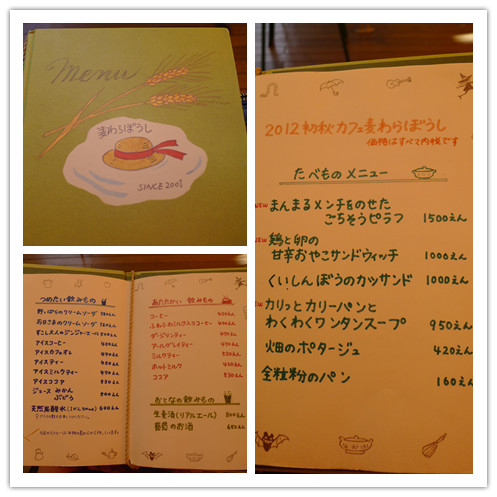 Menu
麦わらぼうし
SINCE 2001
つめたい飲みもの
野いちごのクリームソーダ
おひさまのクリームソーダ
すこし大人のジンジャーエール
アイスコーヒー
アイスカフェオレ
アイスティー
アイスミルクティー
アイスココア
ジュース みかん
ぶどう
天然炭酸水
あたたかい飲みもの
コーヒー
ふわふわミルクのコーヒー
ダージリンティー
アールグレイティー
ミルクティー
ホットミルク
ココア
おとなの飲みもの
生麦酒(リアルエール)
葡萄のお酒
2012初秋カフェ麦わらぼうし
価格はすべて内税です
たべもの メニュー
NEW まんまるメンチをのせた
ごちそうピラフ 1500えん
NEW 鶏と卵の
甘辛おやこサンドウィッチ 1000えん
くいしんぼうのカツサンド 1000えん
NEW カリッとカリーパンと
わくわくワンタンスープ 950えん
畑のポタージュ 420えん
全粒粉のパン 160えん